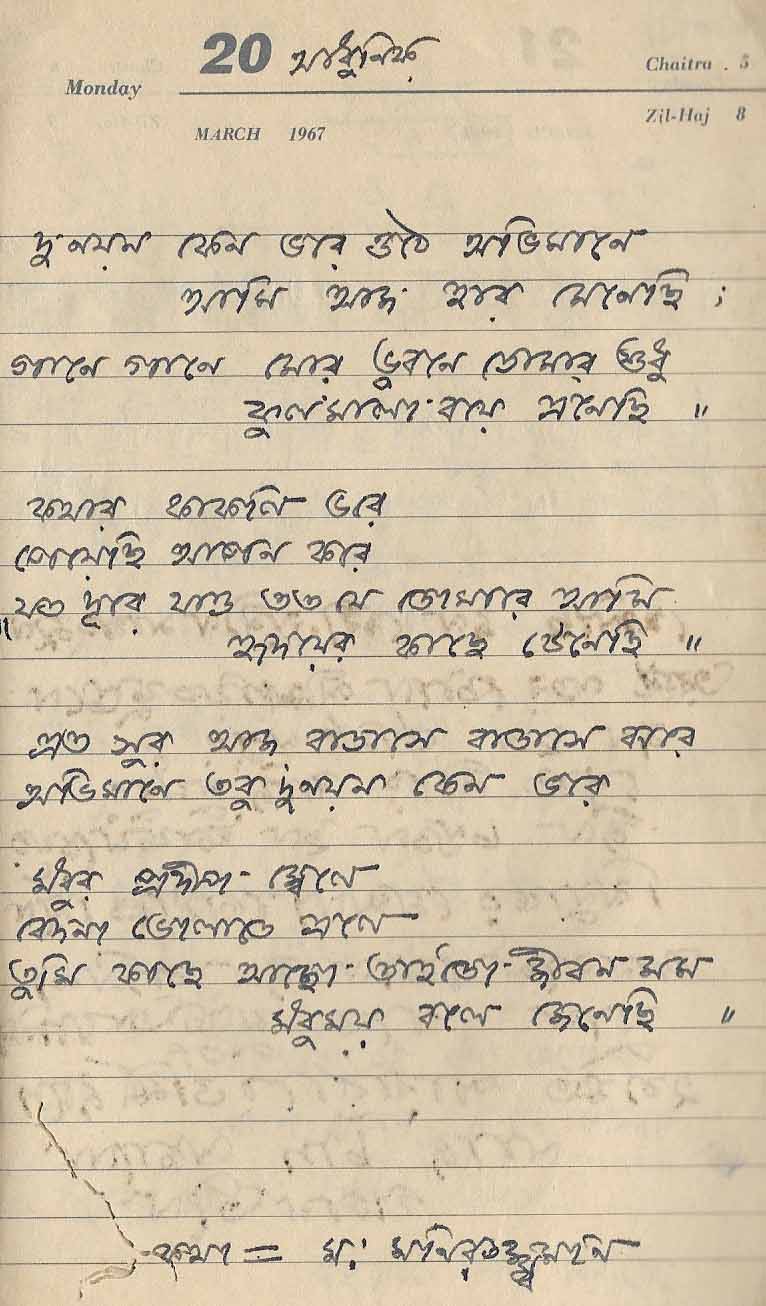 20 আধুনিক
Monday
Chaitra . 5
MARCH 1967
Zil-Haj 8
দু'নয়ন কেন ভরে ওঠে অভিমানে
আমি আজ হার মেনেছি ;
গানে গানে মোর ভুবনে তোমার শুধু
ফুল মালা বয়ে এনেছি "
কথার কাকলি ভরে
পেয়েছি আপন করে
যত দূরে যাও তত যে তোমারে আমি
হৃদয়ের কাছে টেনেছি "
এত সুর আজ বাতাসে বাতাসে ঝরে
অভিমানে তবু দু'নয়ন কেন ভরে
মধুর প্রদীপ জ্বেলে
বেদনা ভোলাতে এলে
তুমি কাছে আছো তাইতো জীবন মম
মধুময় বলে জেনেছি "
কথা = ম: মনিরুজ্জামান